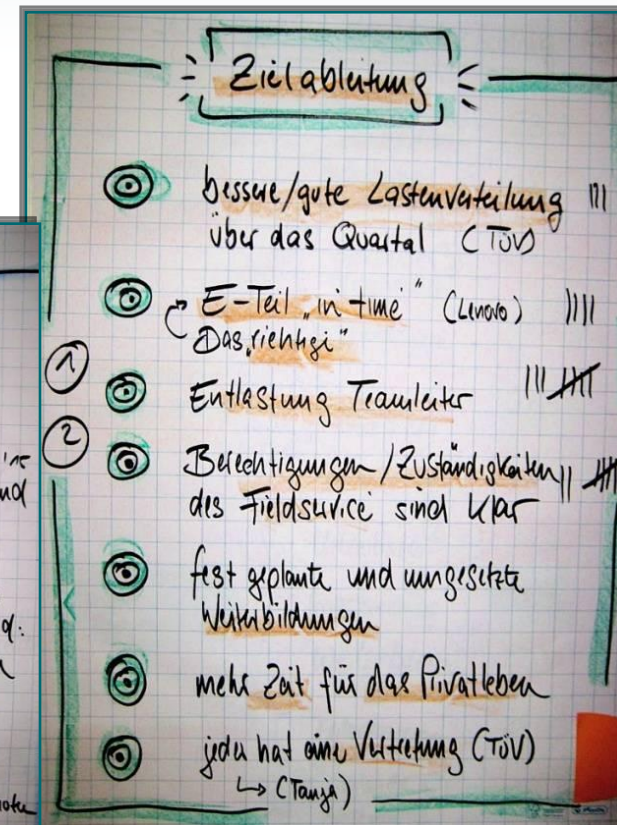 Zielableitung
bessere/gute Lastenverteilung III
über das Quartal (TÜV)
E-Teil „in time" (Lenovo) IIII
Das „richtige"
1
Entlastung Teamleiter III IIII
2
Berechtigungen/Zuständigkeiten II IIII
des Fieldservice sind klar
fest geplante und umgesetzte
Weiterbildungen
mehr Zeit für das Privatleben
jeder hat eine Vertretung (TÜV)
↳ (Tanja)